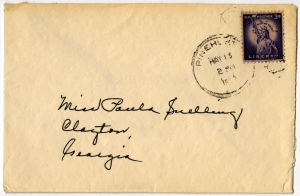 PINEHURST
MAY 13
2 PM
U.S. POSTAGE 3¢
LIBERTY
Miss Paula Snelling
Clayton,
Georgia